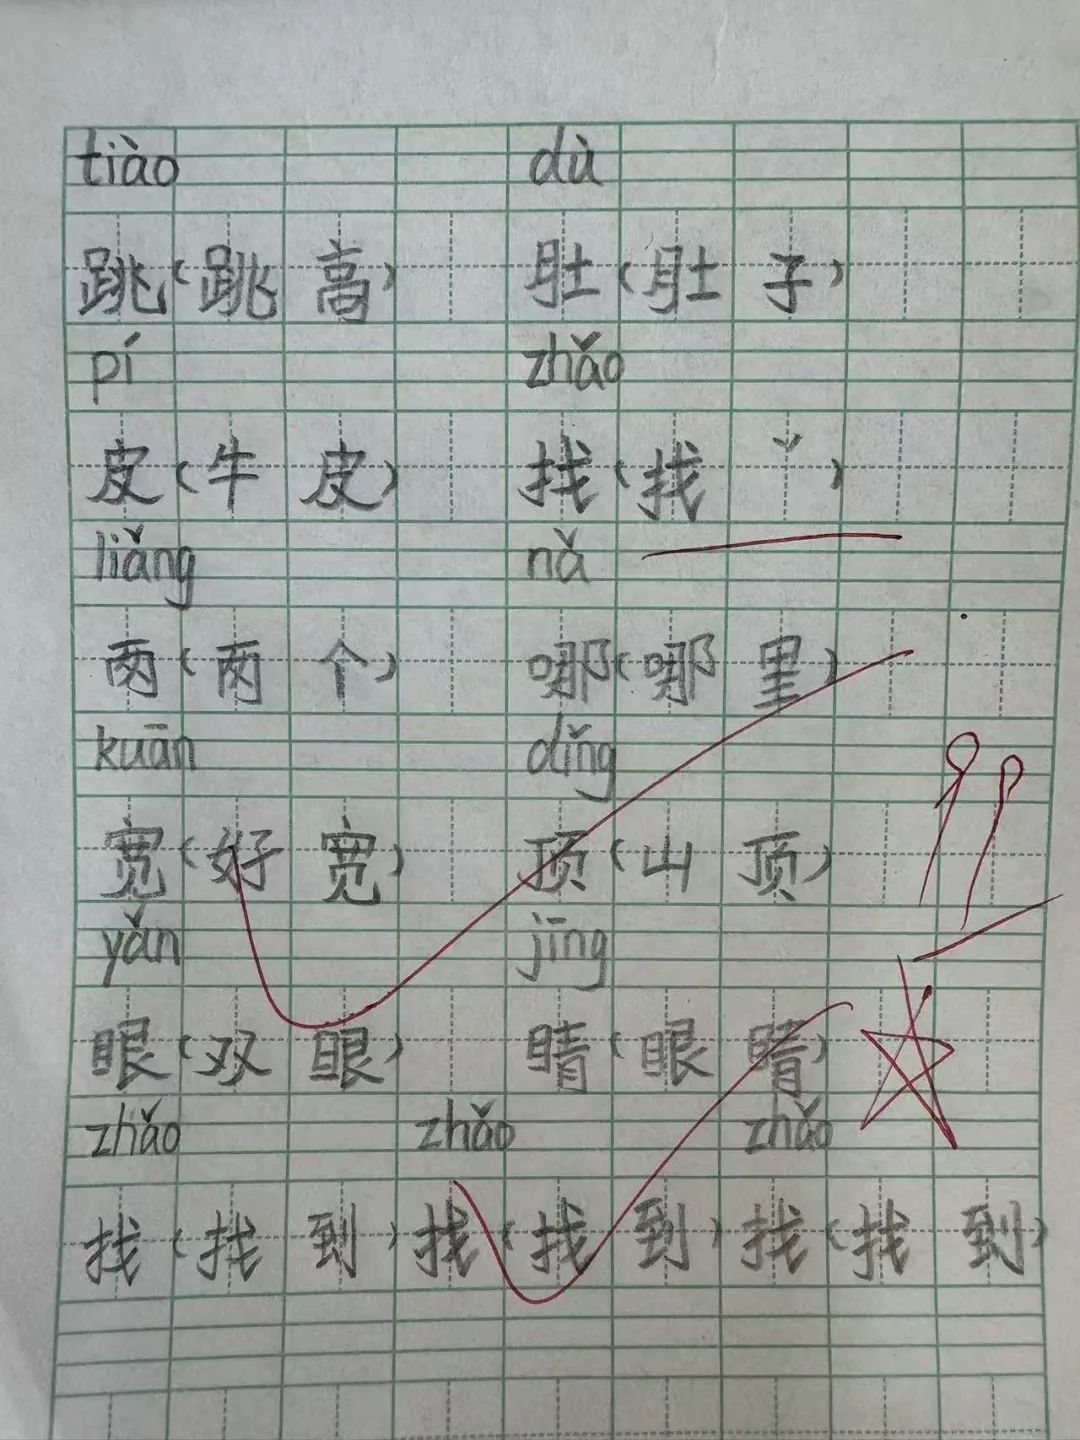 tiào dù
跳(跳高) 肚(肚子)
pí zhǎo
皮(牛皮) 找(找ˇ)
liǎng nǎ
两(两个) 哪(哪里)
kuān dǐng
宽(好宽) 顶(山顶)
yǎn jīng
眼(双眼) 睛(眼睛)
zhǎo zhǎo zhǎo
找(找到) 找(找到) 找(找到)